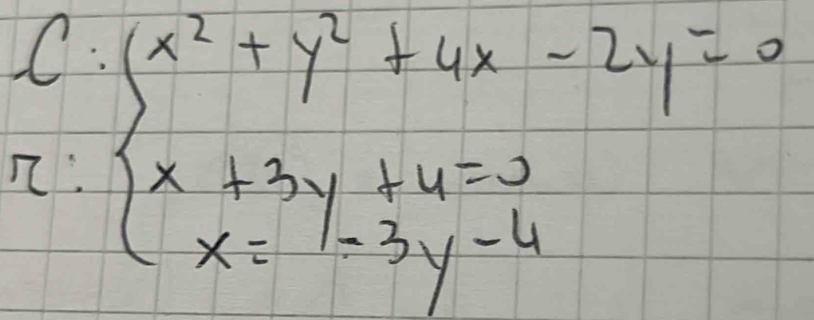 C: { x² + y² + 4x - 2y = 0
r: { x + 3y + 4 = 0
x = - 3y - 4